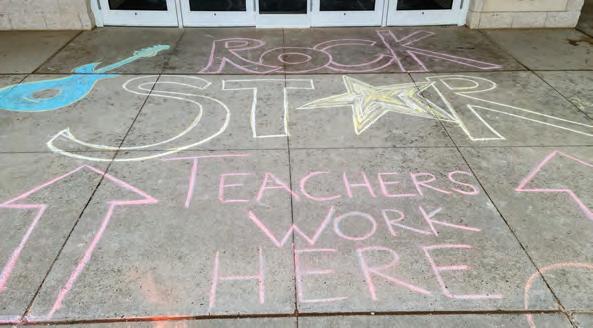 ROCK
STAR
TEACHERS
WORK
HERE